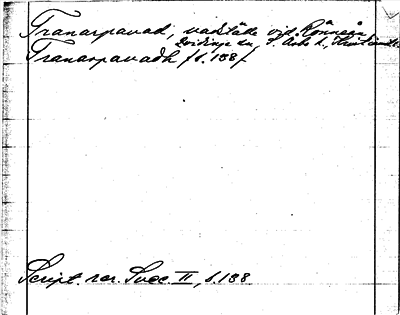 Tranarpavad, vadställe vid Rönneån,
Tranarpavadh /s. 188/
Script. rer. Svec. II, s. 188